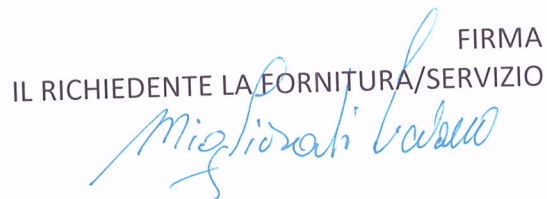 FIRMA
IL RICHIEDENTE LA FORNITURA/SERVIZIO
Migliorati